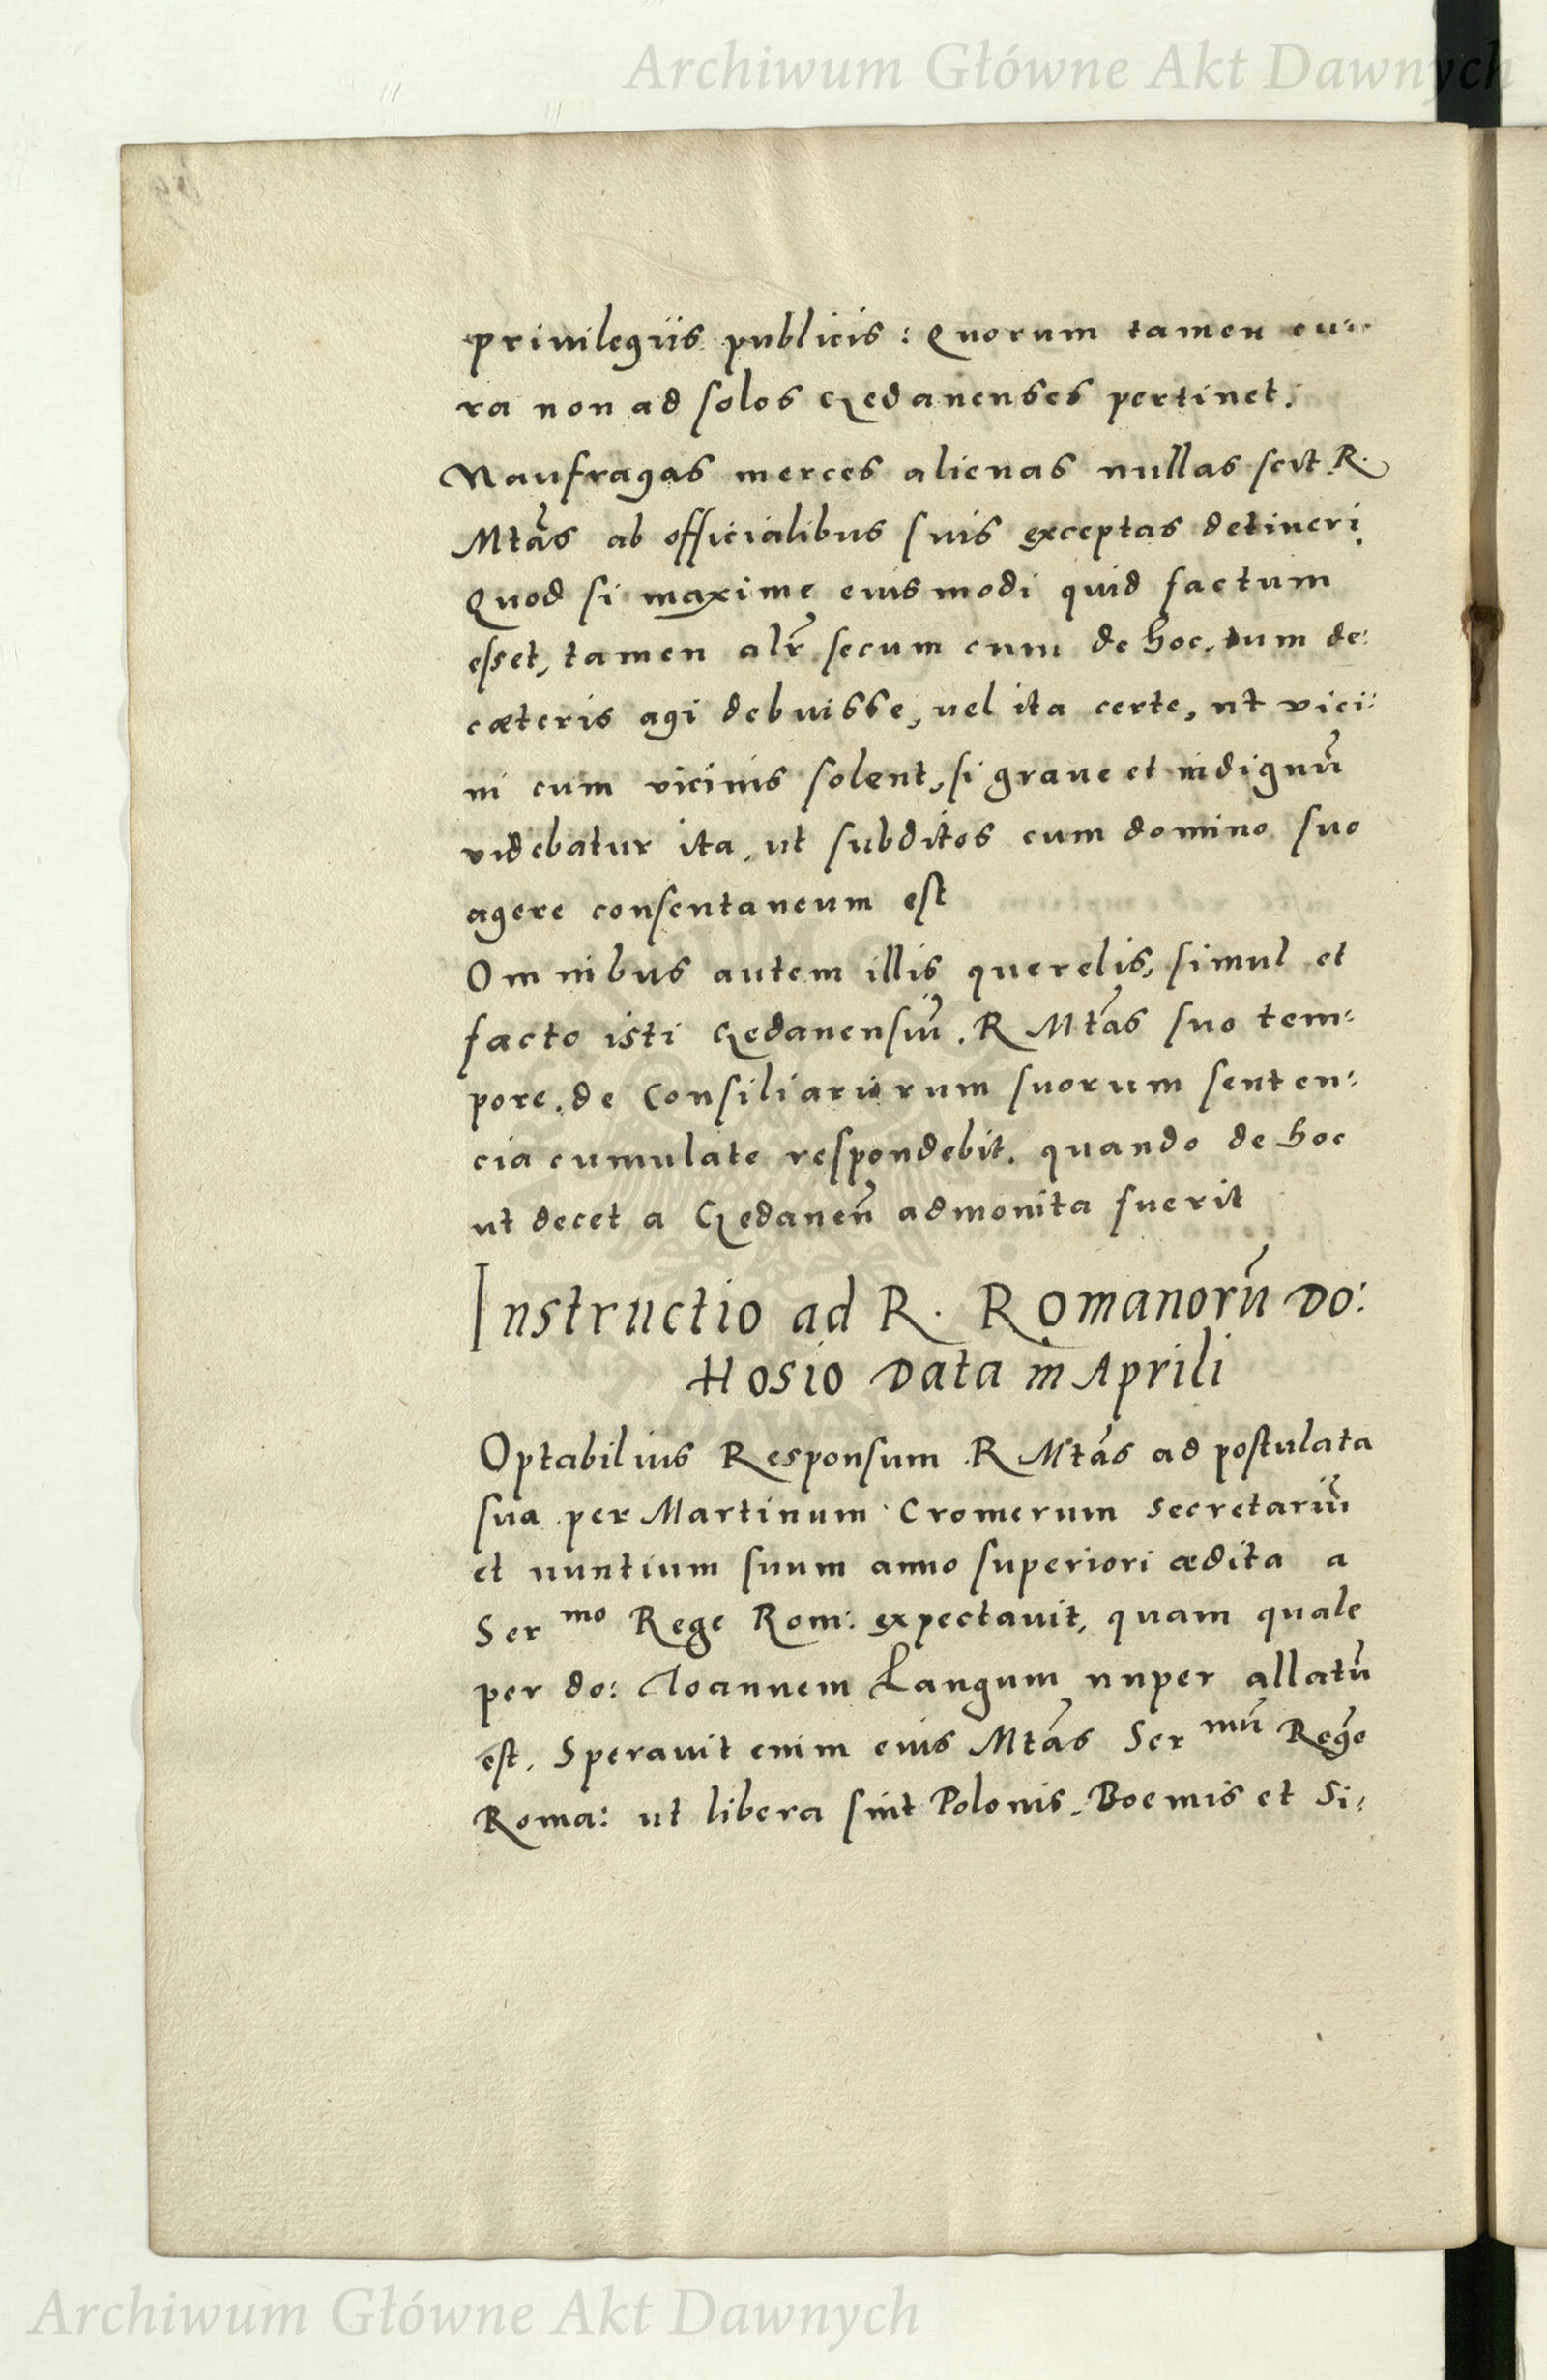 Archiwum Główne Akt Dawnych
priuilegiis publicis : Quorum tamen cu:
ra non ad solos Gedanenses pertinet.
Naufragas merces alienas nullas scit R.
Mtãs ab officialibus suis exceptas detineri.
Quod si maxime eiusmodi quid factum
esset, tamen alr̃ secum cum de hoc, tum de:
cæteris agi debuisse, uel ita certe, ut vici:
ni cum vicinis solent, si graue et indignũ
videbatur ita, ut subditos cum domino suo
agere consentaneum est
Omnibus autem illis querelis, simul et
facto isti Gedanensiũ. R Mtãs suo tem:
pore, de Consiliariorum suorum senten:
cia cumulate respondebit. quando de hoc
ut decet a Gedaneñ admonita fuerit
Instructio ad R. Romanorũ Do:
Hosio Data in Aprili
Optabilius Responsum R Mtãs ad postulata
sua per Martinum Cromerum Secretariũ
et nuntium suum anno superiori ædita a
Ser mo Rege Rom: expectauit, quam quale
per do: Ioannem Langum nuper allatũ
est. Sperauit enim eius Mtãs Ser mũ Regẽ
Roma: ut libera sint Polonis, Boemis et Si:
Archiwum Główne Akt Dawnych